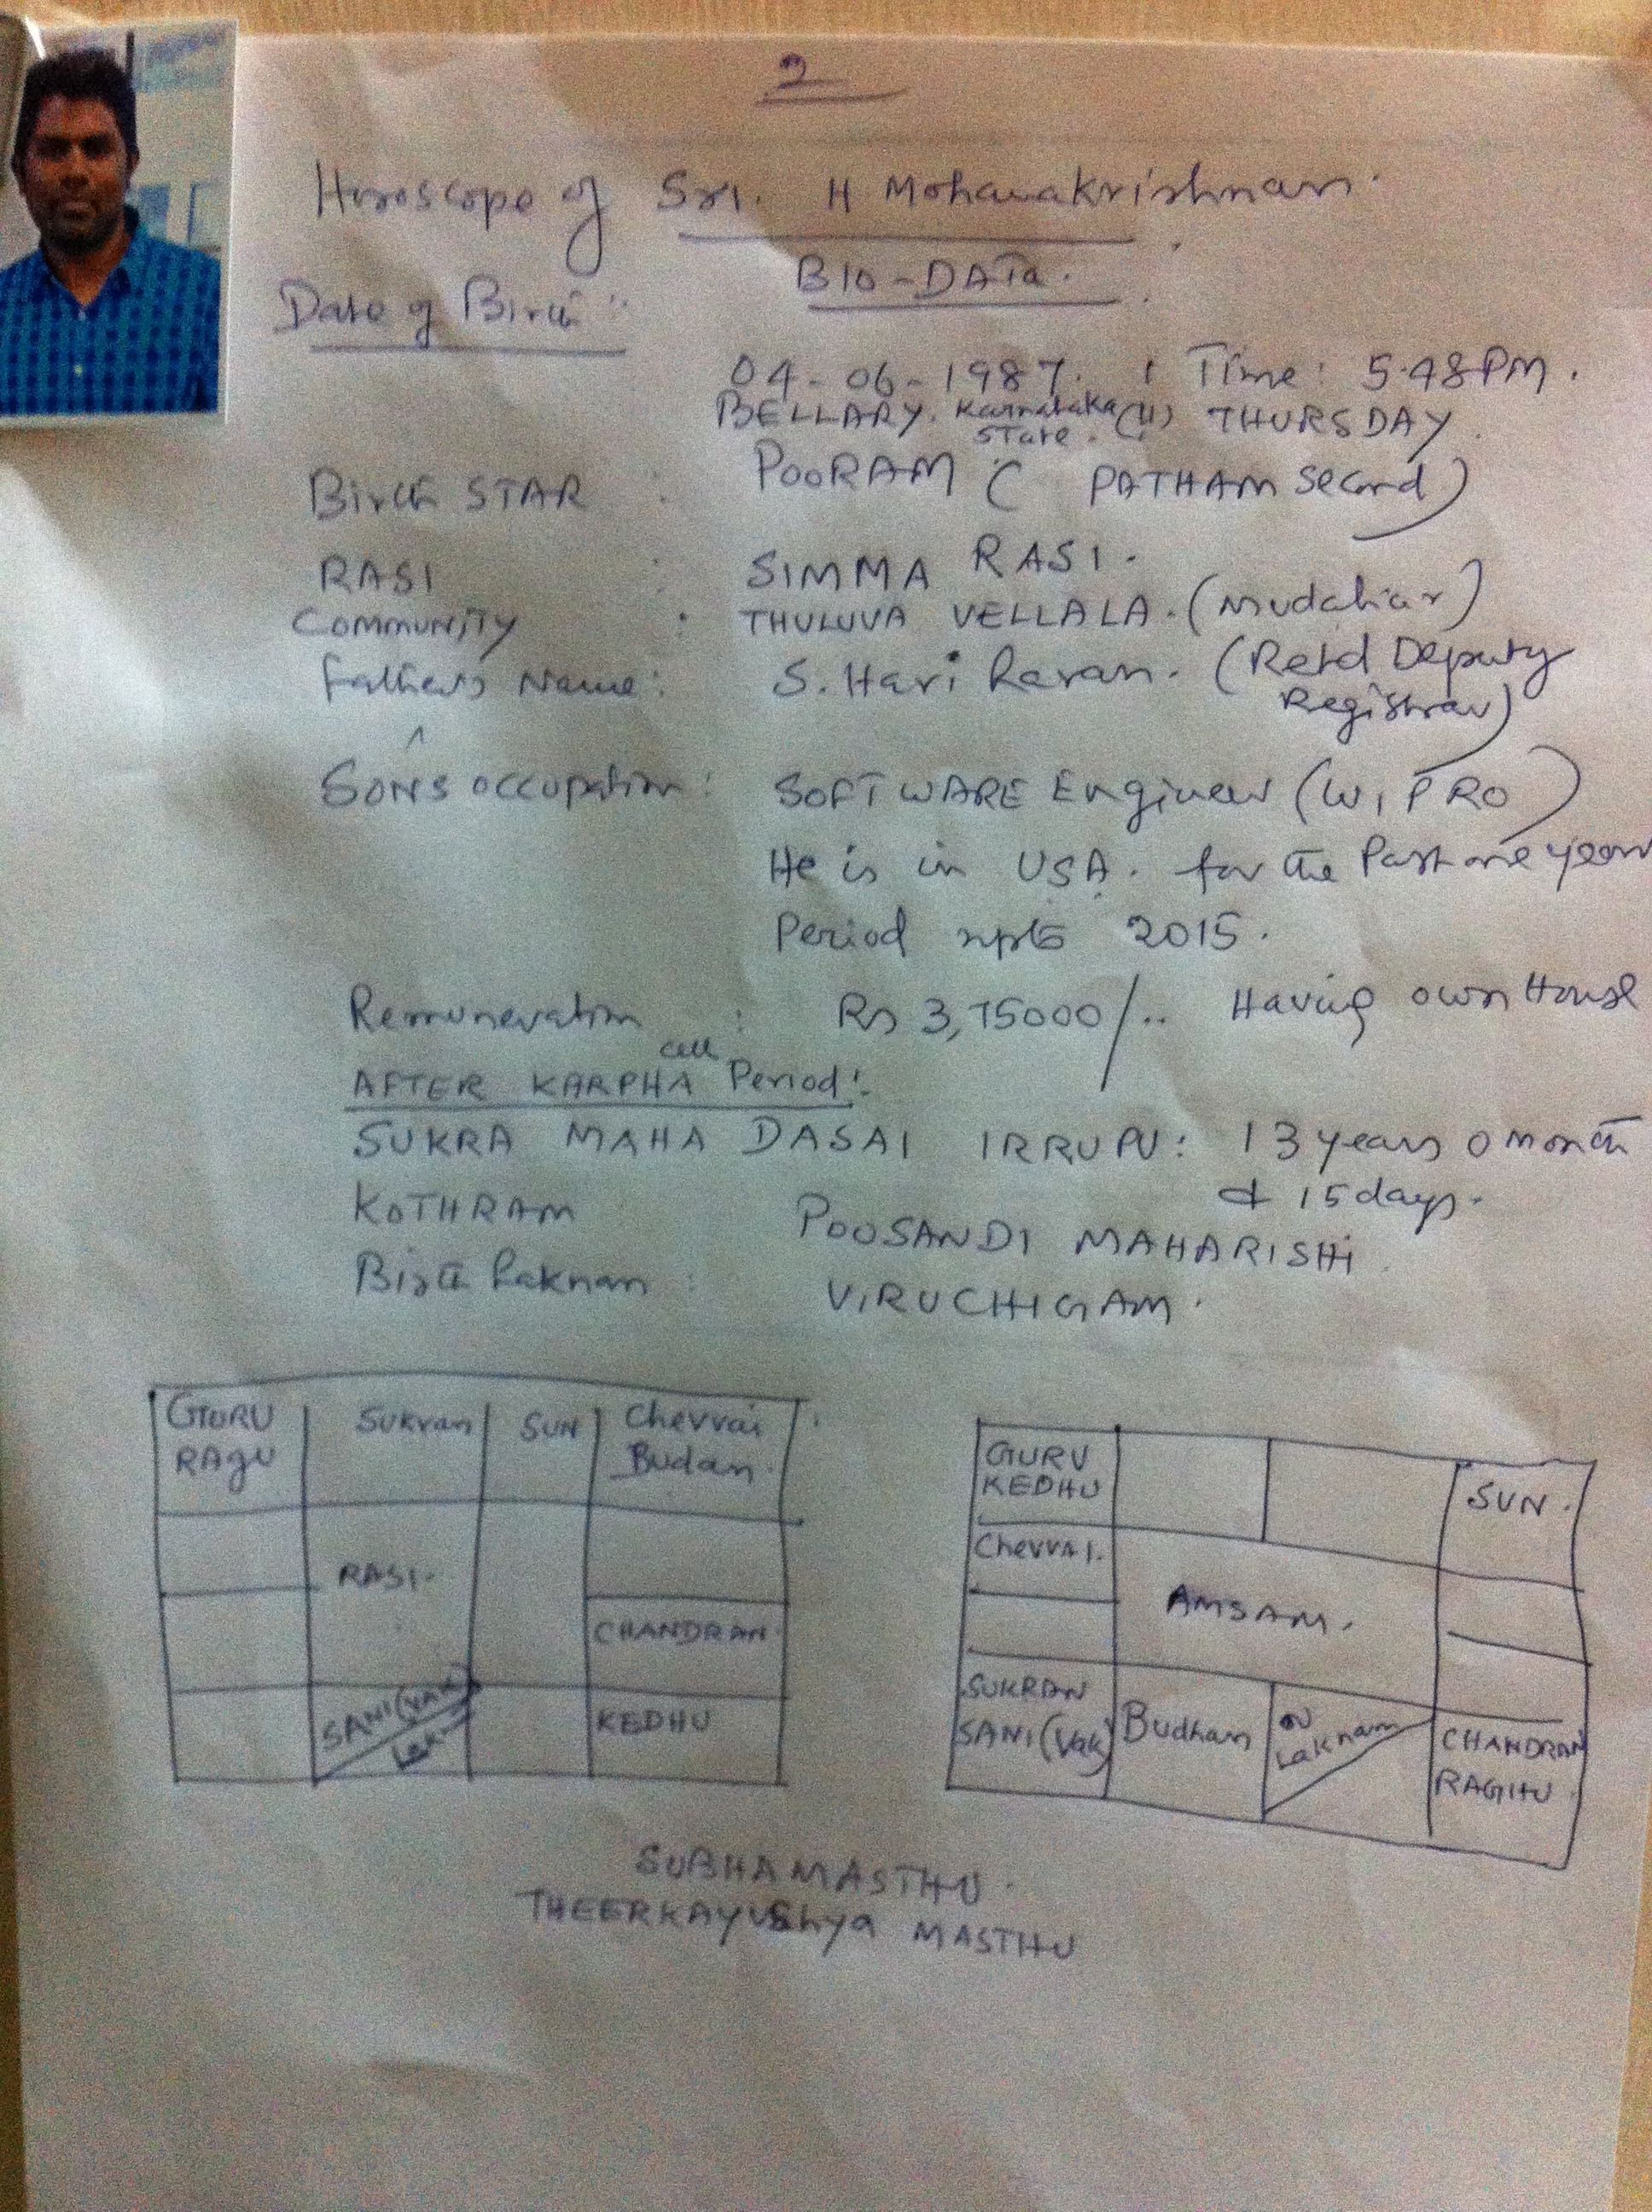 2
Horoscope of Sri. H Mohanakrishnan.
BIO-DATa.
Date of Birth :
04-06-1987. Time: 5.48PM.
BELLARY. Karnataka State. (H) THURSDAY.
Birth STAR : POORAM ( PATHAM Second)
RASI : SIMMA RASI.
COMMUNITY : THULUVA VELLALA. (Mudaliar)
Father's Name: S. Hari Haran. (Retd Deputy
Registrar)
SON'S occupation: SOFTWARE Engineer (WIPRO)
He is in USA. for the Past one year
Period upto 2015.
Remuneration : Rs 3,75000/.. Having own House
AFTER KARPHA cell Period:-
SUKRA MAHA DASAI IRRUPU: 13 years 0 month
& 15 days.
KOTHRAM POOSANDI MAHARISHi.
Birth Laknam : ViRUCHIGAM.
GURU
RAGU
Sukran
SUN
Chevvai
Budan.
RASI.
CHANDRAN.
SANI (Vak)
Lak
KEDHU
GURU
KEDHU
SUN.
Chevvai.
AMSAM.
SUKRAN
SANI (Vak)
Budhan
Laknam
CHANDRAN
RAGHU.
SUBHAMASTHU.
THEERKAYUShya MASTHU